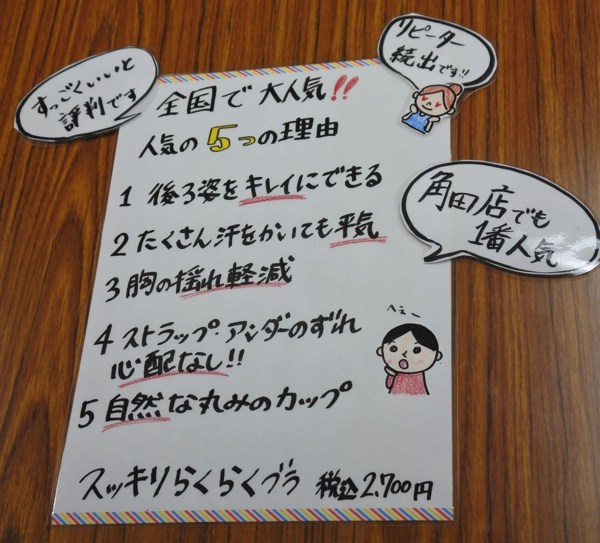 すっごくいいと
評判です
リピーター
続出です!!
全国で大人気!!
人気の5つの理由
角田店でも
1番人気
1 後ろ姿をキレイにできる
2 たくさん汗をかいても平気
3 胸の揺れ軽減
へぇー
4 ストラップ・アンダーのずれ
心配なし!!
5 自然な丸みのカップ
スッキリらくらくブラ 税込2,700円